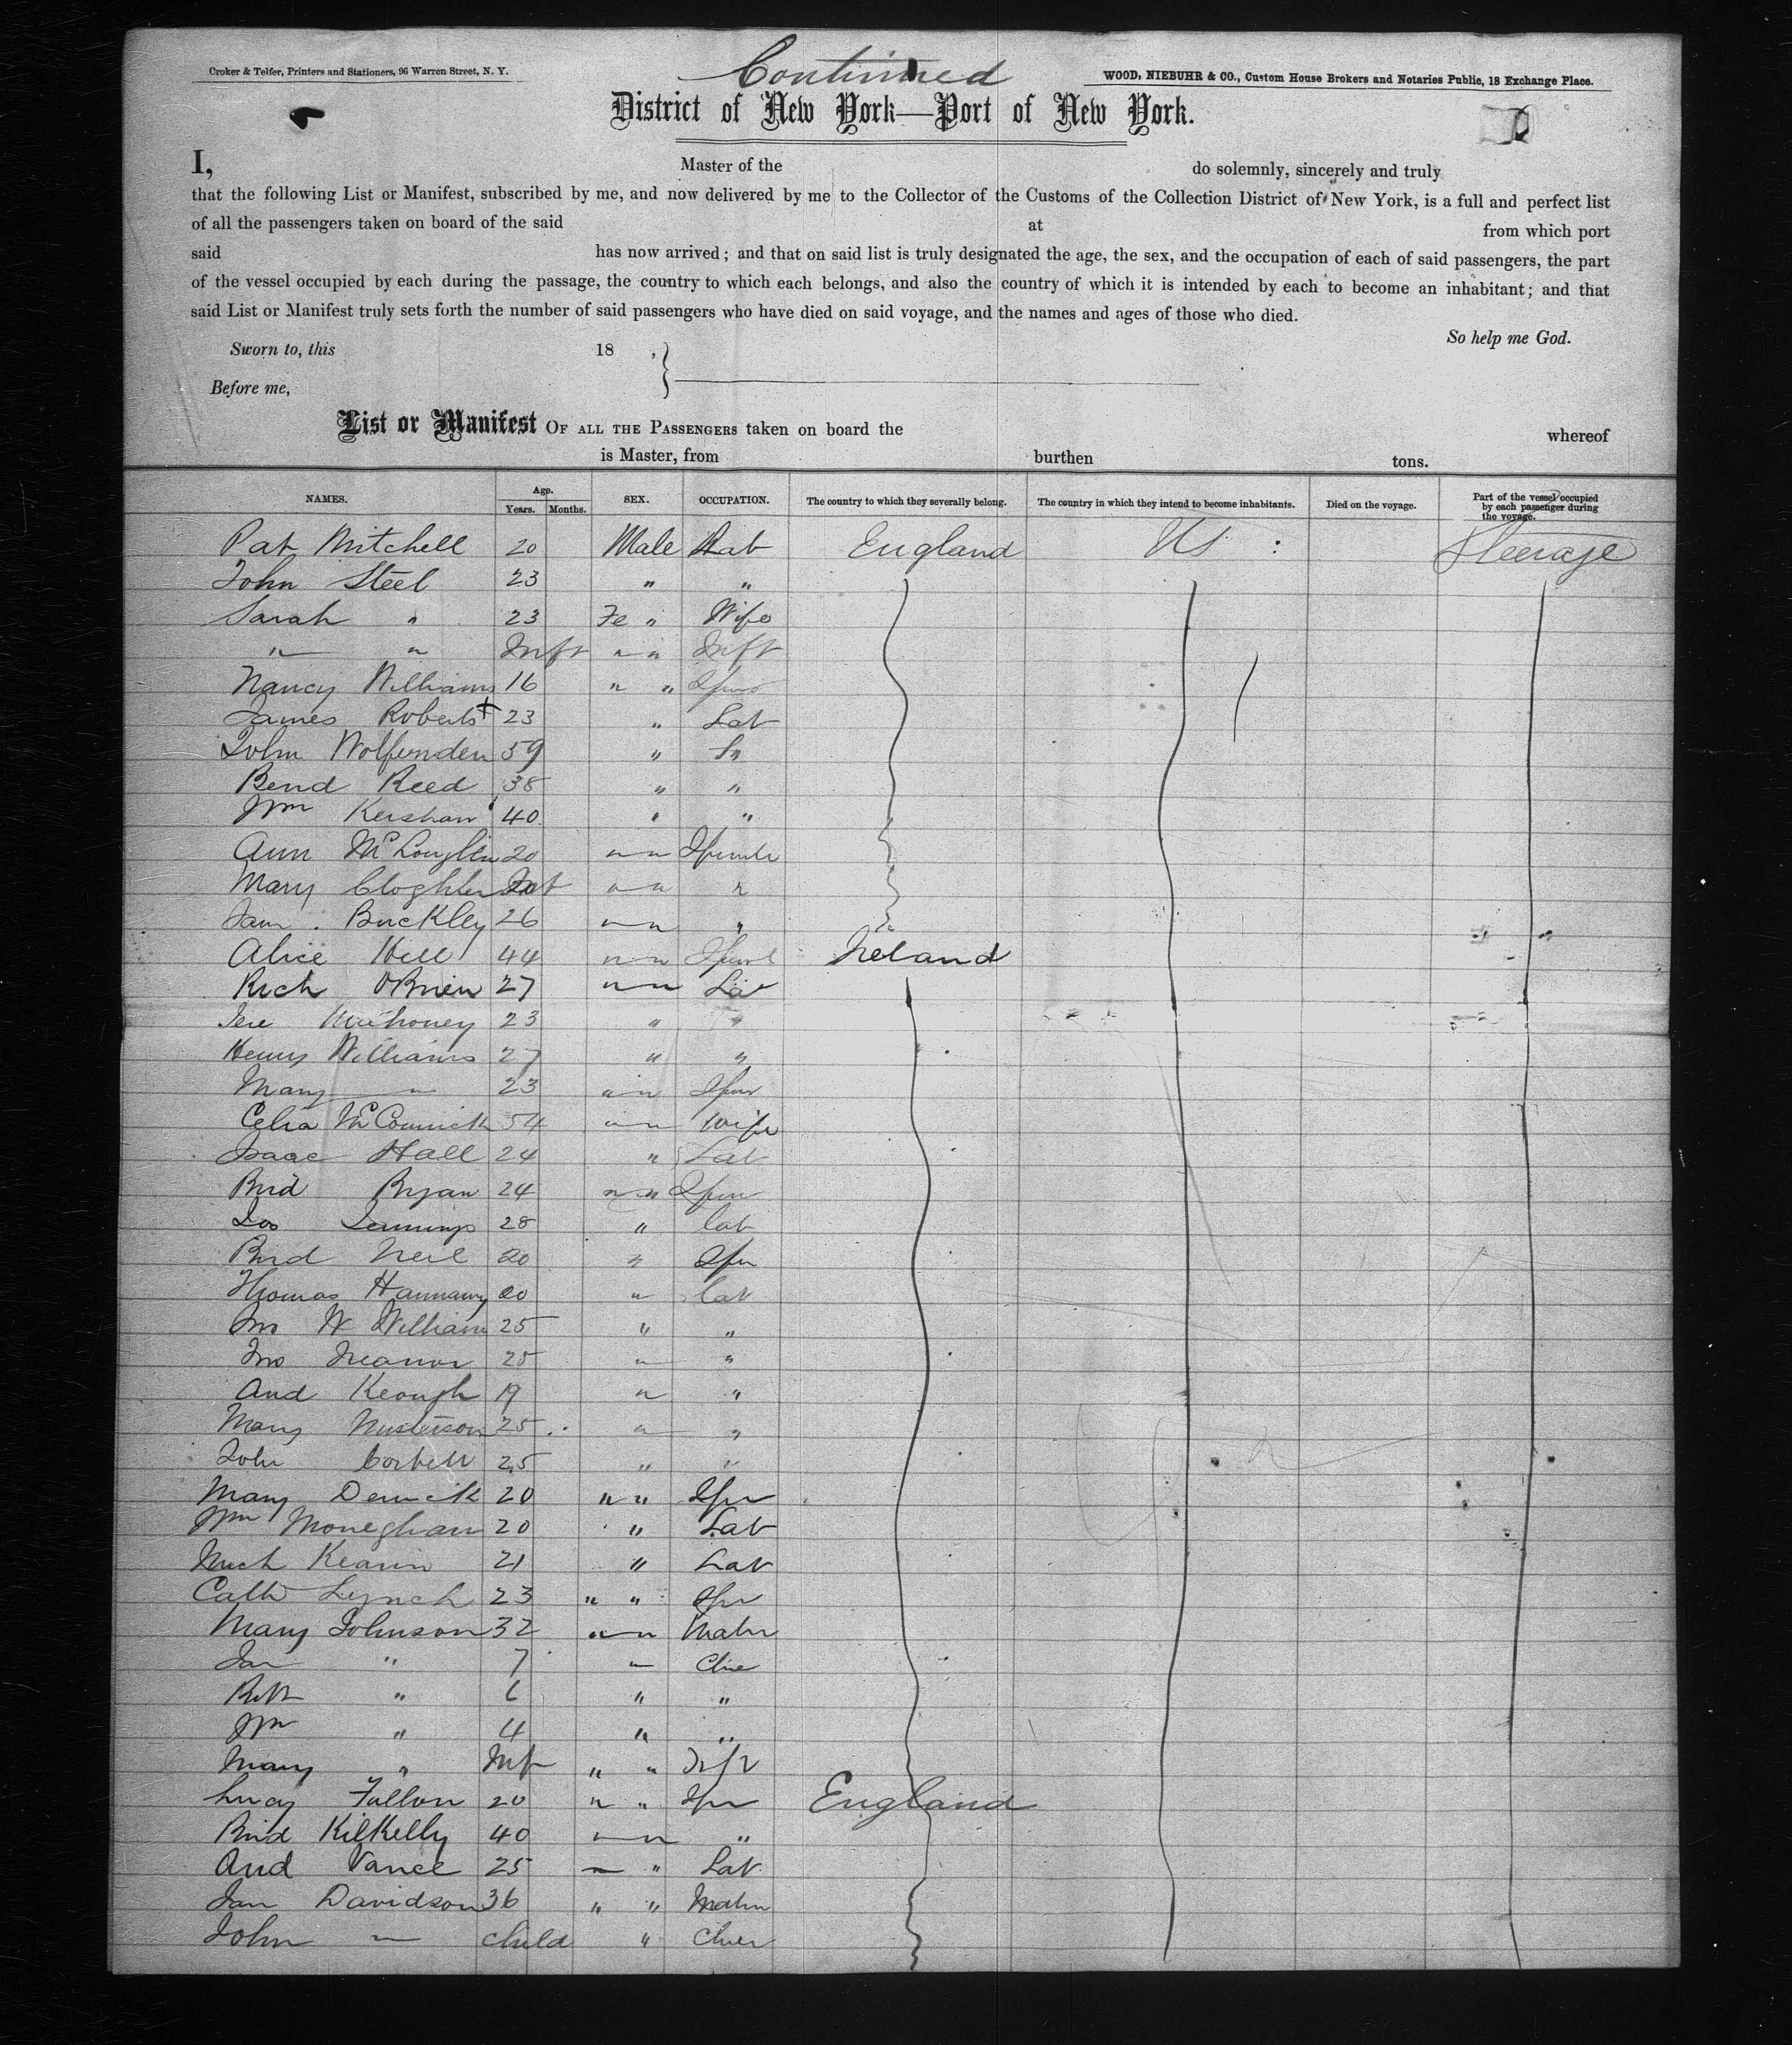 Croker & Telfer, Printers and Stationers, 96 Warren Street, N. Y.
Continued
WOOD, NIEBUHR & CO., Custom House Brokers and Notaries Public, 18 Exchange Place.
District of New York—Port of New York.
I, Master of the do solemnly, sincerely and truly
that the following List or Manifest, subscribed by me, and now delivered by me to the Collector of the Customs of the Collection District of New York, is a full and perfect list
of all the passengers taken on board of the said at from which port
said has now arrived; and that on said list is truly designated the age, the sex, and the occupation of each of said passengers, the part
of the vessel occupied by each during the passage, the country to which each belongs, and also the country of which it is intended by each to become an inhabitant; and that
said List or Manifest truly sets forth the number of said passengers who have died on said voyage, and the names and ages of those who died.
So help me God.
Sworn to, this 18 ,
Before me,
List or Manifest OF ALL THE PASSENGERS taken on board the whereof
is Master, from burthen tons.
NAMES. Age. Years. Months. SEX. OCCUPATION. The country to which they severally belong. The country in which they intend to become inhabitants. Died on the voyage. Part of the vessel occupied by each passenger during the voyage.
Pat Mitchell 20 Male Lab England US : Steerage
John Steel 23 " "
Sarah " 23 Fe " Wife
" " Inft " " Inft
Nancy Williams 16 " "
James Roberts + 23 " Lab
John Wolfenden 59 "
Bend Reed 38 " "
Wm Kershaw 40 " "
Ann McLoughlin 20 " "
Mary Cloghlen " " "
Jam. Buckley 26 " " "
Alice Hill 44 " " Ireland
Rich OBrien 27 " " Lab
Jere Mahoney 23 " "
Henry Williams 27 " "
Mary " 23 " " Spin
Celia McCormick 54 " " Wife
Isaac Hall 24 " Lab
Brid Ryan 24 " " Spin
Jos Jennings 28 " lab
Brid Neil 20 " Spin
Thomas Hannaway 20 " lab
Jno W William 25 " "
Jno 25 " "
And Keough 19 " "
Mary Masterson 25 " "
John Corbett 25 " "
Mary 20 " " Spr
Wm Moneghan 20 " Lab
Mich 21 " Lab
Cath Lynch 23 " " Spr
Mary Johnson 32 " " Matn
Jan " 7 "
Robt " 6 " "
Wm " 4 " "
Mary " Inf " " Inft
Lucy Fallon 20 " " Spr England
Brid Kilkelly 40 " " "
And Vance 25 " " Lab
Jan Davidson 36 " " Matn
John " child "